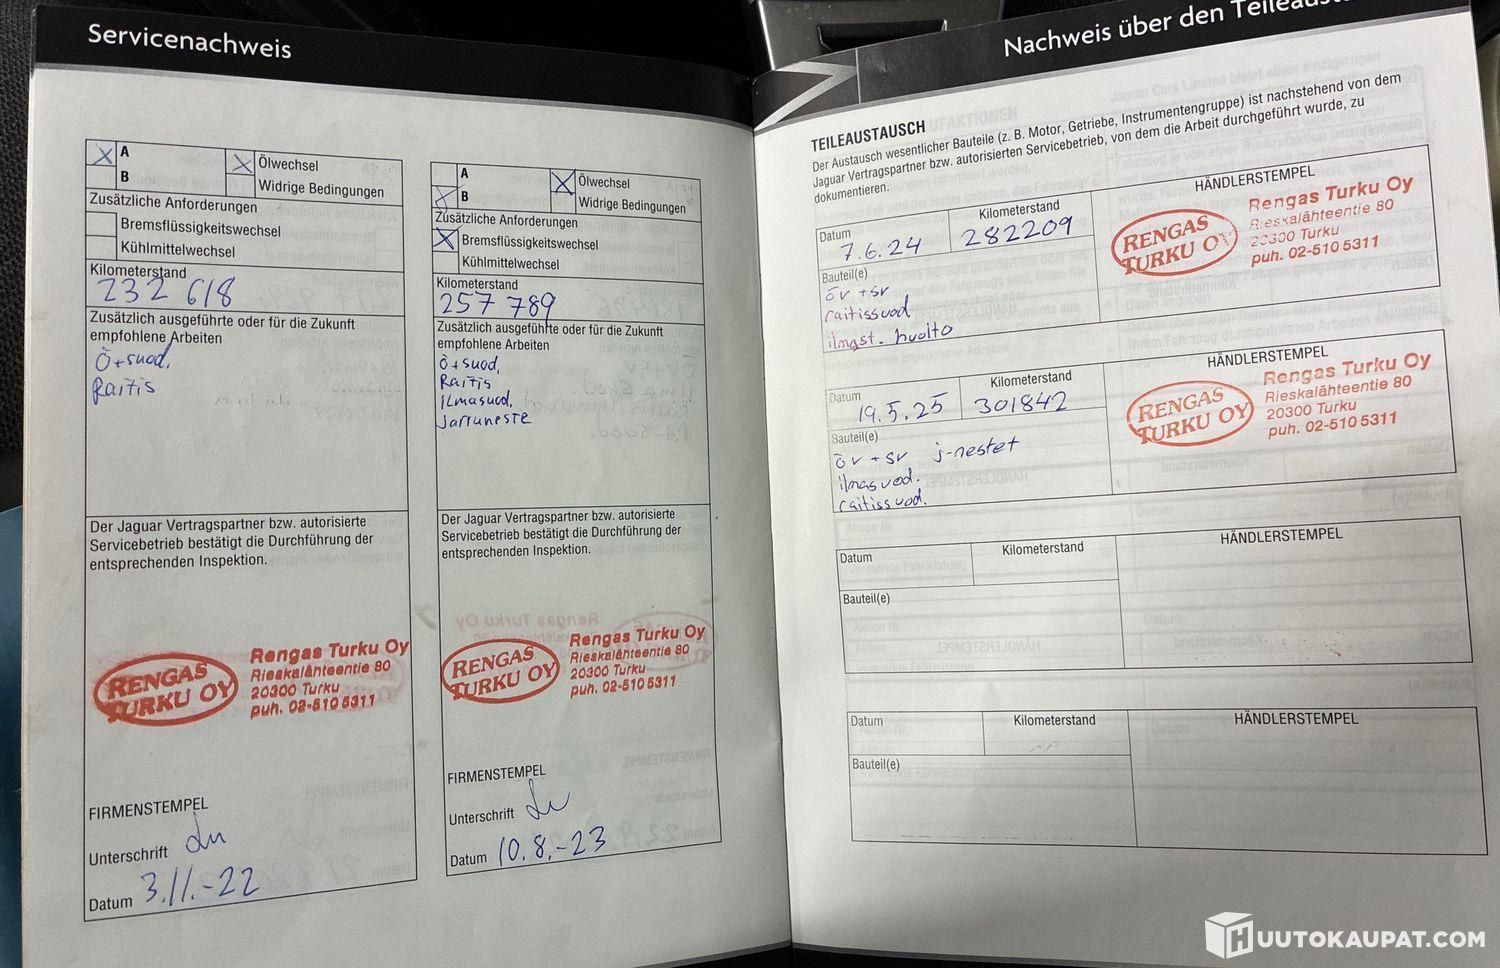 Servicenachweis
A
B
Ölwechsel
Widrige Bedingungen
Zusätzliche Anforderungen
Bremsflüssigkeitswechsel
Kühlmittelwechsel
Kilometerstand
232 618
Zusätzlich ausgeführte oder für die Zukunft
empfohlene Arbeiten
Ö+suod,
Raitis
Der Jaguar Vertragspartner bzw. autorisierte
Servicebetrieb bestätigt die Durchführung der
entsprechenden Inspektion.
RENGAS
TURKU OY
Rengas Turku Oy
Rieskalähteentie 80
20300 Turku
puh. 02-510 5311
FIRMENSTEMPEL
Unterschrift
Datum 3.11.-22
A
B
Ölwechsel
Widrige Bedingungen
Zusätzliche Anforderungen
Bremsflüssigkeitswechsel
Kühlmittelwechsel
Kilometerstand
257 789
Zusätzlich ausgeführte oder für die Zukunft
empfohlene Arbeiten
Ö+suod,
Raitis
Ilmasuod,
Jarruneste
Der Jaguar Vertragspartner bzw. autorisierte
Servicebetrieb bestätigt die Durchführung der
entsprechenden Inspektion.
RENGAS
TURKU OY
Rengas Turku Oy
Rieskalähteentie 80
20300 Turku
puh. 02-510 5311
FIRMENSTEMPEL
Unterschrift
Datum 10.8.-23
Nachweis über den
TEILEAUSTAUSCH
Der Austausch wesentlicher Bauteile (z. B. Motor, Getriebe, Instrumentengruppe) ist nachstehend von dem
Jaguar Vertragspartner bzw. autorisierten Servicebetrieb, von dem die Arbeit durchgeführt wurde, zu
dokumentieren.
Datum
7.6.24
Kilometerstand
282209
HÄNDLERSTEMPEL
Bauteil(e)
öv + sv
raitissuod
ilmast. huolto
RENGAS
TURKU OY
Rengas Turku Oy
Rieskalähteentie 80
20300 Turku
puh. 02-510 5311
Datum
19.5.25
Kilometerstand
301842
HÄNDLERSTEMPEL
Bauteil(e)
öv + sv j-nestet
ilmasuod.
raitissuod.
RENGAS
TURKU OY
Rengas Turku Oy
Rieskalähteentie 80
20300 Turku
puh. 02-510 5311
Datum
Kilometerstand
HÄNDLERSTEMPEL
Bauteil(e)
Datum
Kilometerstand
HÄNDLERSTEMPEL
Bauteil(e)
HUUTOKAUPAT.COM